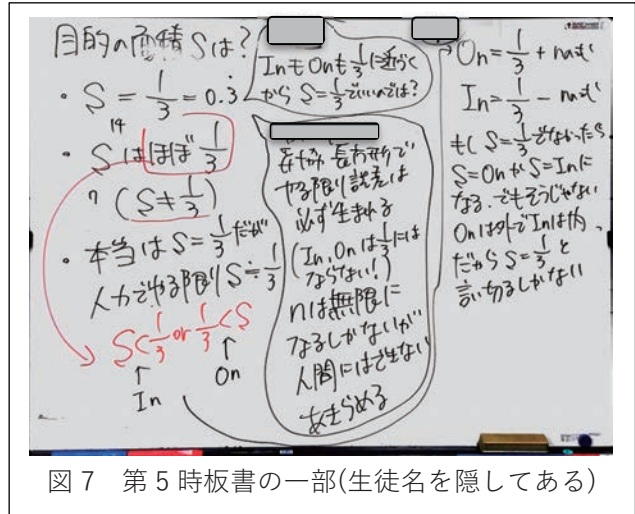 目的の面積Sは?
・S = 1/3 = 0.3̇
14
・Sはほぼ 1/3
7 (S≠1/3)
・本当は S=1/3 だが
人力でやる限り S≒1/3
S<1/3 or 1/3<S
↑ ↑
In On
InもOnも 1/3 に近づく
から S=1/3 でいいのでは?
長方形で
やる限り誤差は
必ず生まれる
(In, Onは 1/3 には
ならない!)
nは無限に
なるしかないが
人間にはできない
あきらめる
On = 1/3 + nおもく
In = 1/3 -
もし S=1/3 でなかったら
S=OnかS=Inに
なる. でもそうじゃない
Onは外でInは内、
だから S=1/3 と
言い切るしかない
図7 第5時板書の一部(生徒名を隠してある)